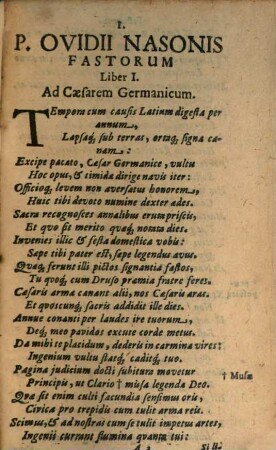 I.
P. OVIDII NASONIS
FASTORUM
Liber I.
Ad Cæsarem Germanicum.
TEmpora cum causis Latium digesta per
annum,
Lapsaq; sub terras, ortaq; signa ca-
nam:
Excipe pacato, Cæsar Germanice, vultu
Hoc opus, & timidæ dirige navis iter:
Officioq; levem non aversatus honorem,
Huic tibi devoto numine dexter ades.
Sacra recognosces annalibus eruta priscis,
Et quo sit merito quæq; notata dies.
Invenies illic & festa domestica vobis:
Sæpe tibi pater est, sæpe legendus avus.
Quæq; ferunt illi pictos signantia fastos,
Tu quoq; cum Druso præmia fratre feres.
Cæsaris arma canant alii, nos Cæsaris aras.
Et quoscunq; sacris addidit ille dies.
Annue conanti per laudes ire tuorum,
Deq; meo pavidos excute corde metus.
Da mihi te placidum, dederis in carmina vires:
Ingenium vultu statq; caditq; tuo.
Pagina judicium docti subitura movetur
Principis, ut Clario † musa legenda Deo.
† Musæ
Quæ sit enim culti facundia sensimus oris,
Civica pro trepidis cum tulit arma reis.
Scimus, & ad nostras cum se tulit impetus artes,
Ingenii currant flumina quanta tui: